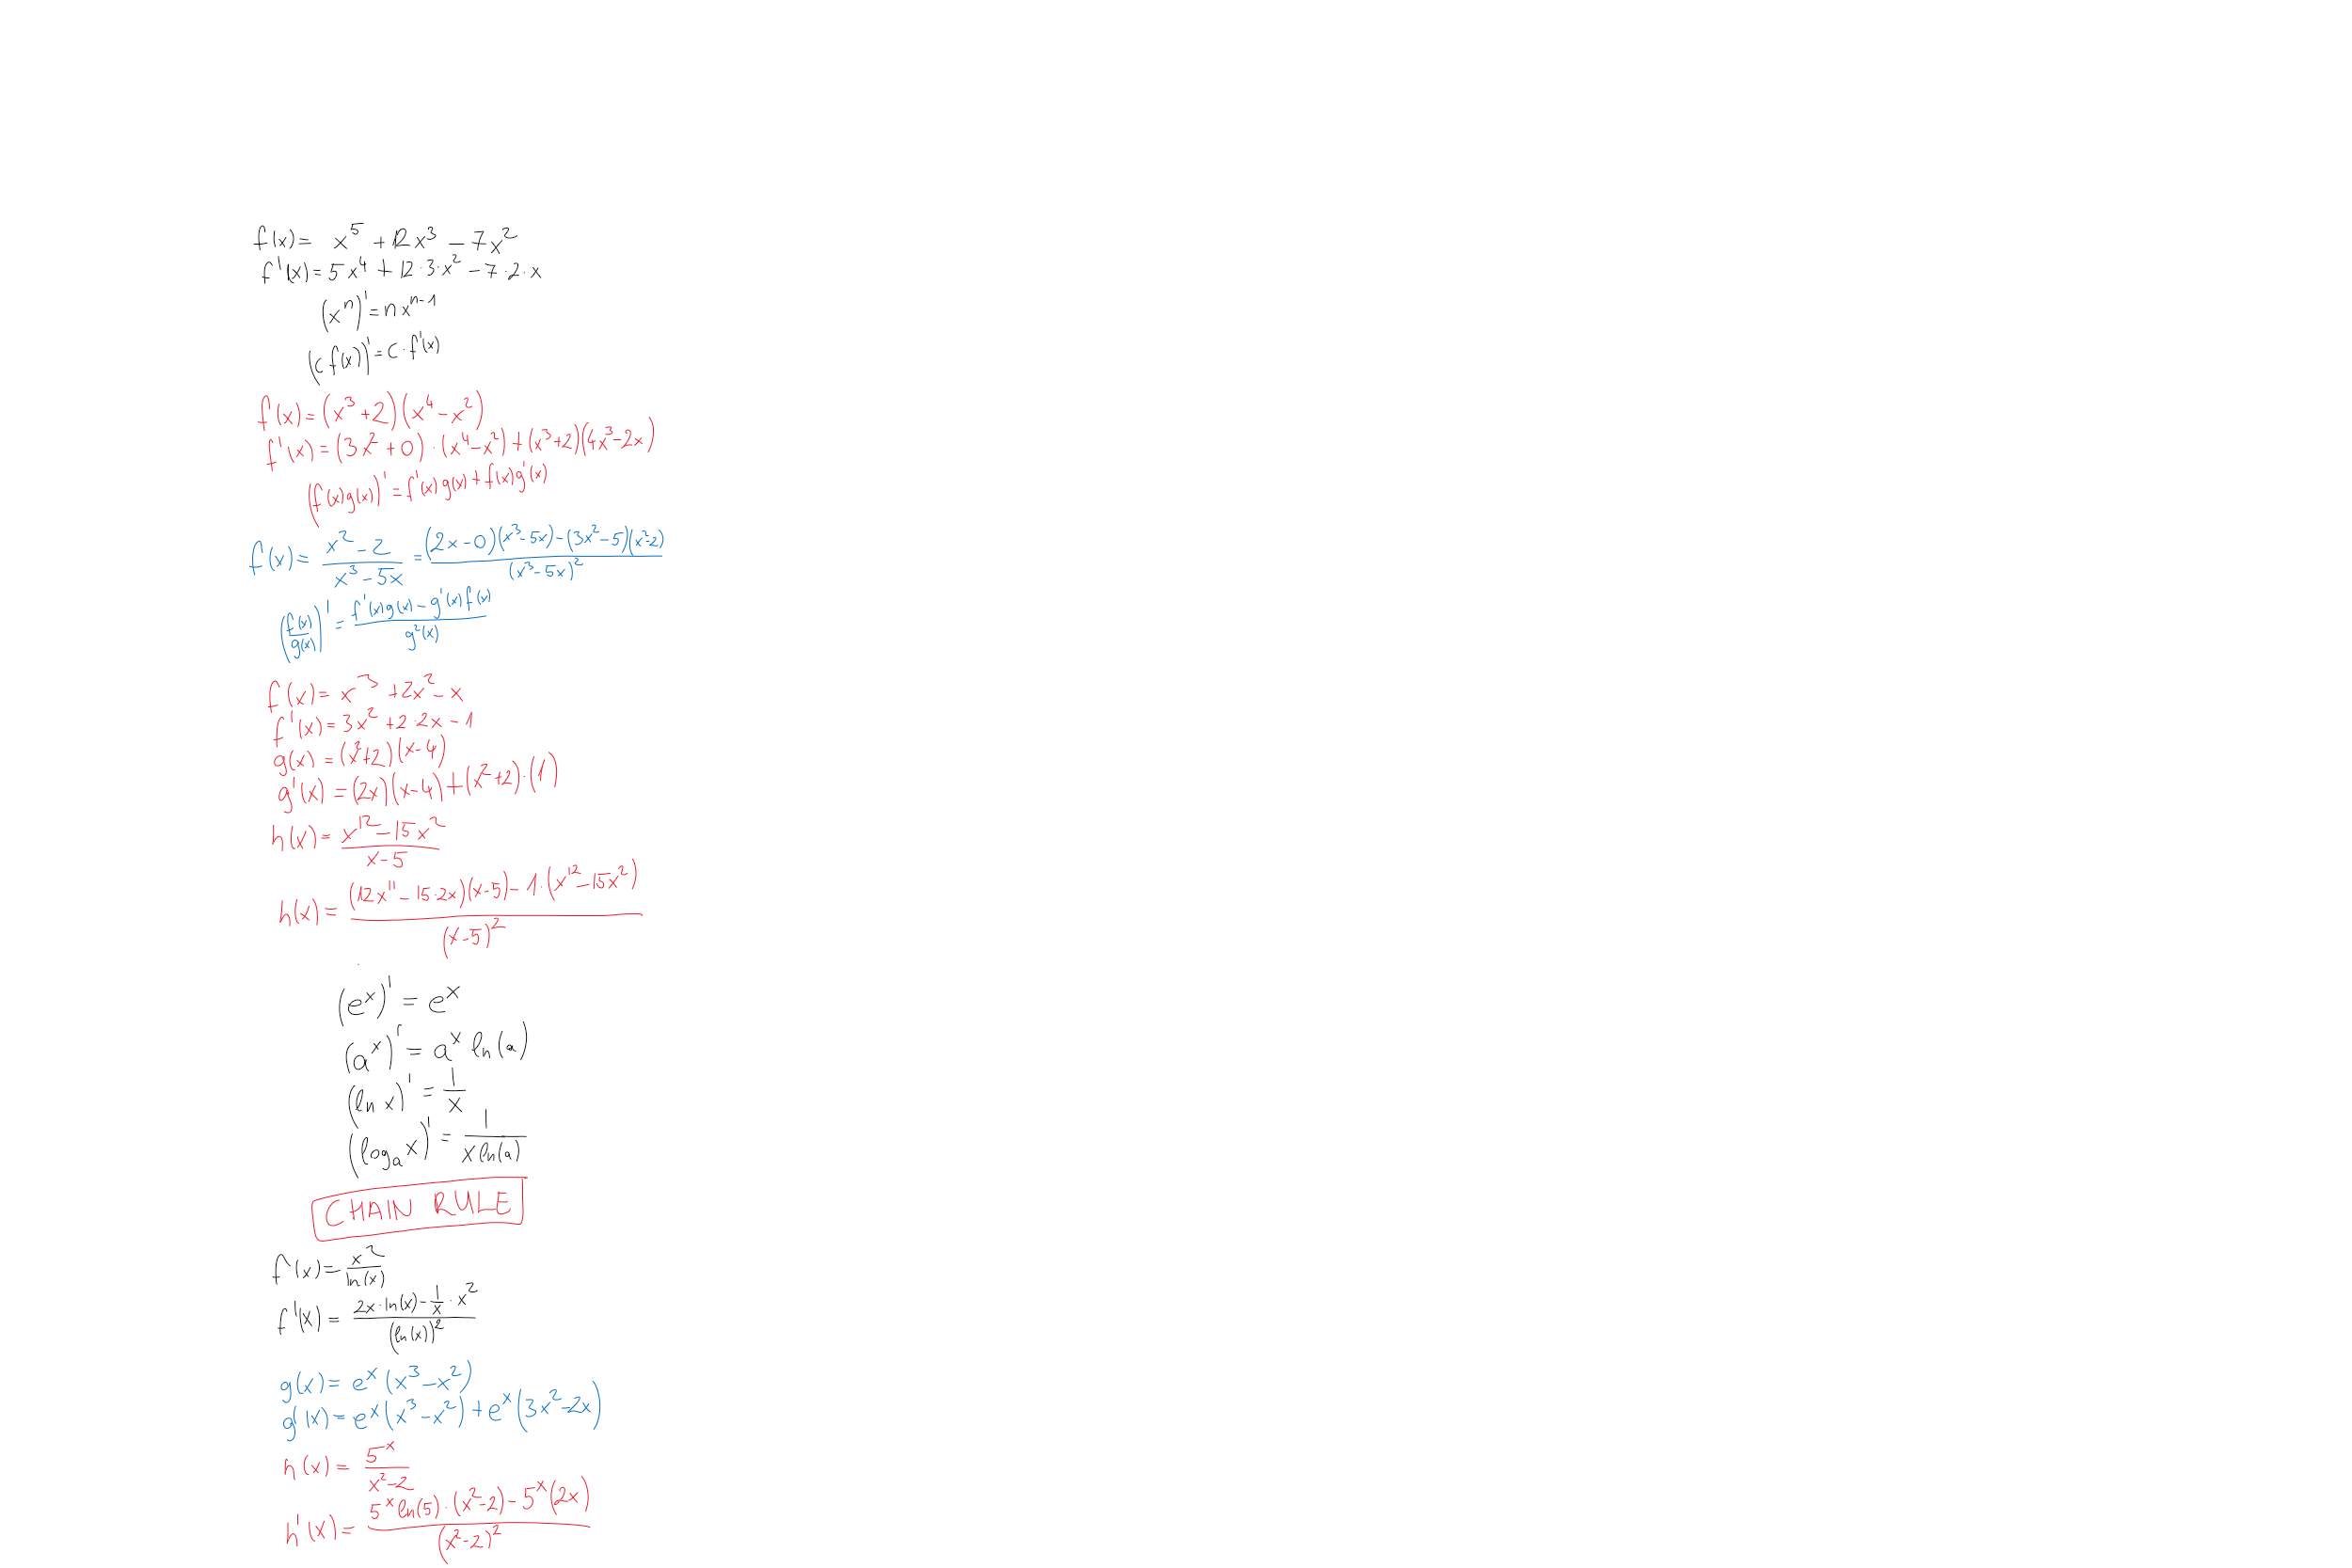 f(x) = x⁵ + 12x³ − 7x²
f'(x) = 5x⁴ + 12·3·x² − 7·2·x
(xⁿ)' = nxⁿ⁻¹
(cf(x))' = c·f'(x)
f(x) = (x³+2)(x⁴−x²)
f'(x) = (3x²+0)·(x⁴−x²)+(x³+2)(4x³−2x)
(f(x)g(x))' = f'(x)g(x)+f(x)g'(x)
f(x) = (x²−2)/(x³−5x) = ((2x−0)(x³−5x)−(3x²−5)(x²−2))/(x³−5x)²
(f(x)/g(x))' = (f'(x)g(x)−g'(x)f(x))/g²(x)
f(x) = x³+2x²−x
f'(x) = 3x²+2·2x−1
g(x) = (x²+2)(x−4)
g'(x) = (2x)(x−4)+(x²+2)·(1)
h(x) = (x¹²−15x²)/(x−5)
h(x) = ((12x¹¹−15·2x)(x−5)−1·(x¹²−15x²))/(x−5)²
(eˣ)' = eˣ
(aˣ)' = aˣ ln(a)
(ln x)' = 1/x
(logₐ x)' = 1/(x ln(a))
CHAIN RULE
f(x) = x²/ln(x)
f'(x) = (2x·ln(x)−1/x·x²)/(ln(x))²
g(x) = eˣ(x³−x²)
g'(x) = eˣ(x³−x²)+eˣ(3x²−2x)
h(x) = 5ˣ/(x²−2)
h'(x) = (5ˣ ln(5)·(x²−2)−5ˣ(2x))/(x²−2)²